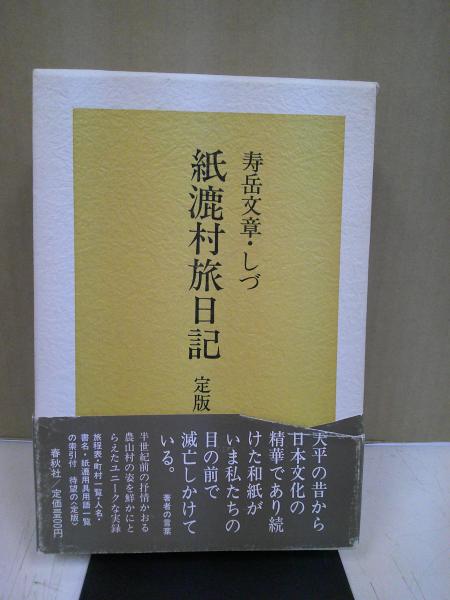 寿岳文章・しづ
紙漉村旅日記
定版
天平の昔から
日本文化の
精華であり続
けた和紙が
いま私たちの
目の前で
滅亡しかけて
いる。
著者の言葉
半世紀前の抒情かおる
農山村の姿を鮮かにと
らえたユニークな実録
旅程表・町村一覧・人名・
書名・紙漉用具用語一覧
の索引付 待望の〈定版〉
春秋社/定価